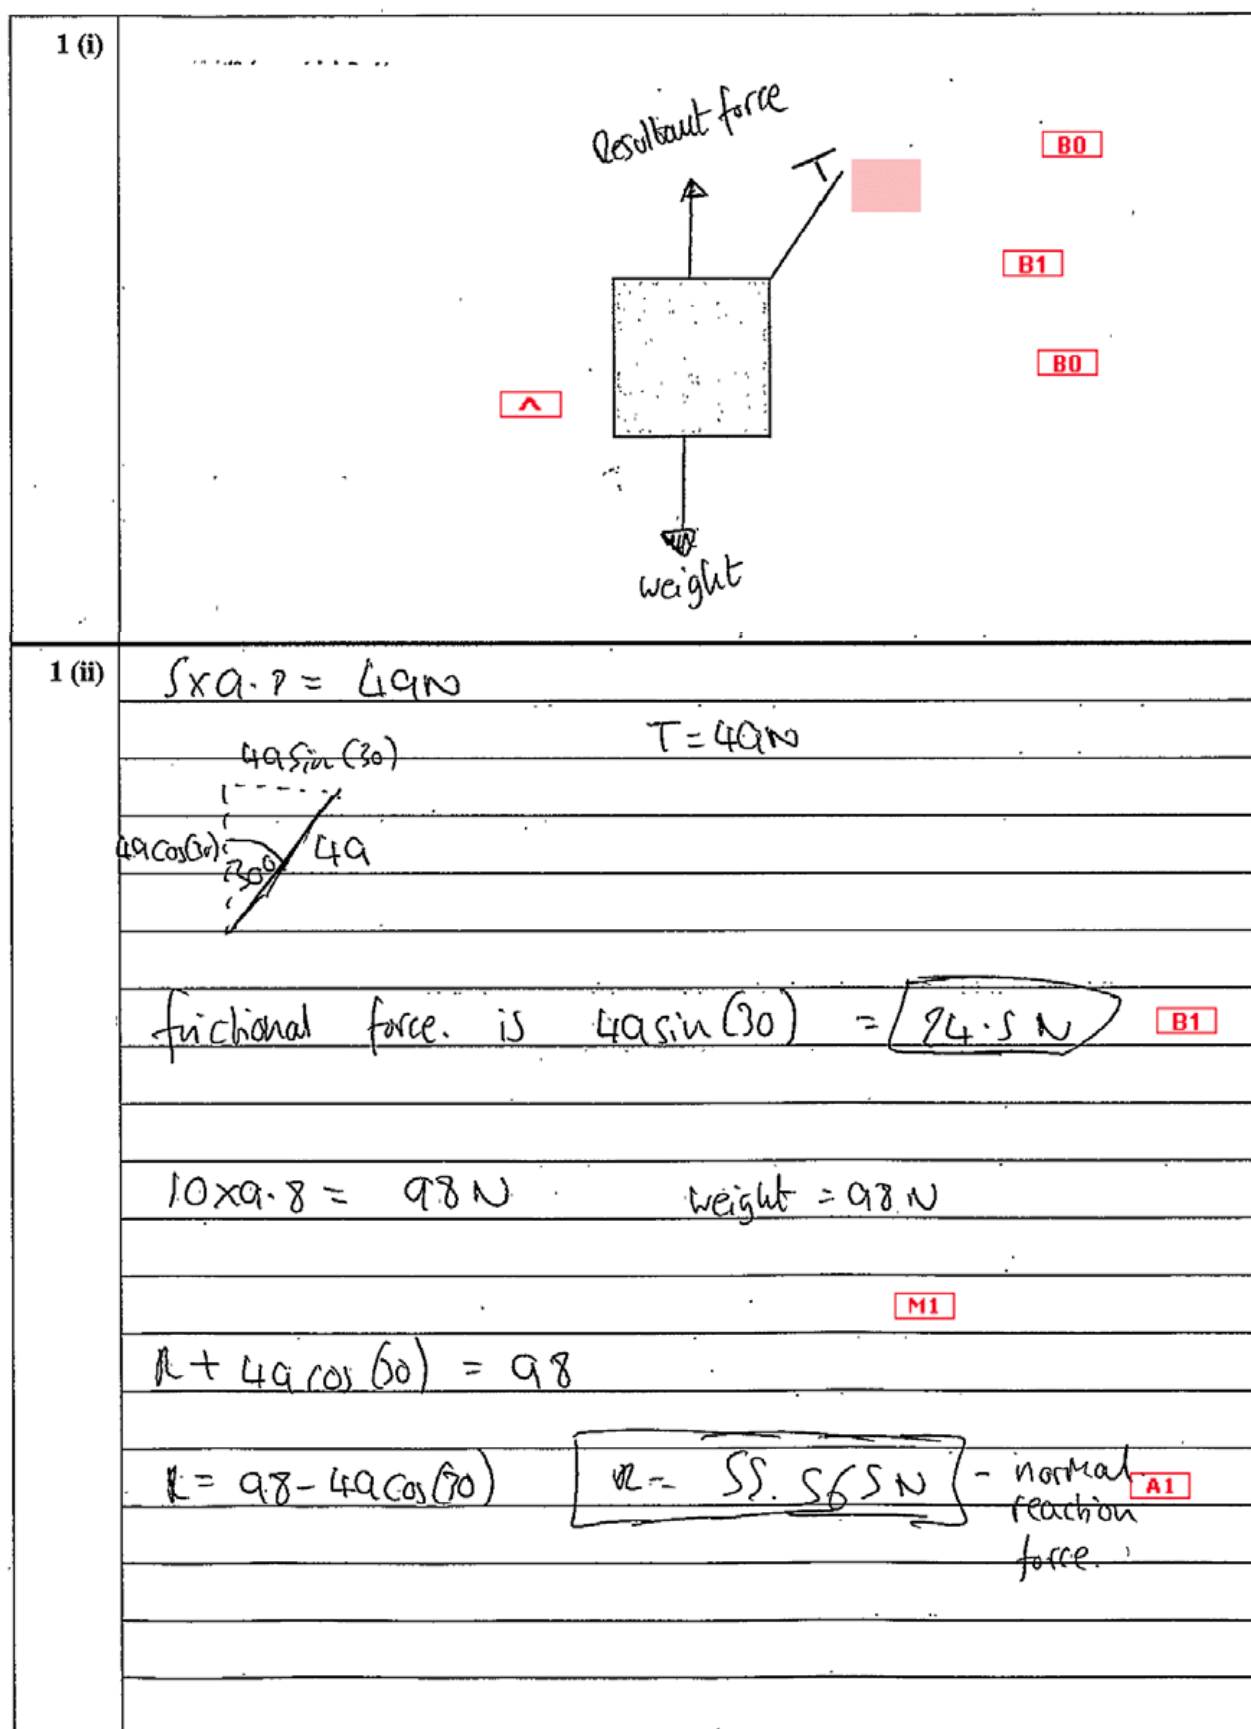 1 (i)
Resultant force
T
B0
B1
B0
^
weight
1 (ii)
5×9.8 = 49N
T = 49N
49 sin (30)
49 cos(30)
30°
49
frictional force. is 49 sin (30) = 24.5 N
B1
10×9.8 = 98 N
weight = 98 N
M1
R + 49 cos (30) = 98
R = 98 - 49 cos (30)
R = 55.565 N - normal
A1
reaction
force.